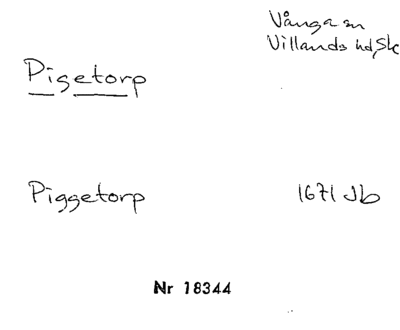 Vånga sn
Villands hd, Sk
Pigetorp
Piggetorp 1671 Jb
Nr 18344